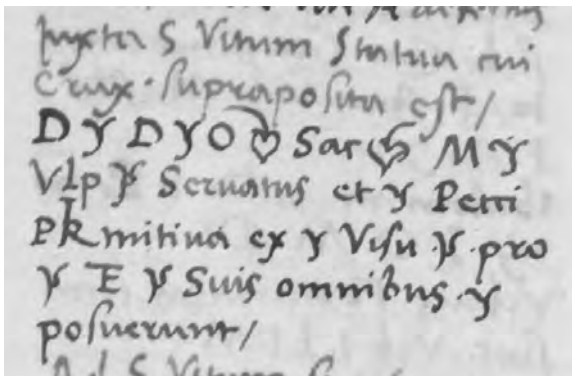 Juxta S Vitum Statua cui
Crux · ſuprapoſita eſt/
D Y D Y O ❦ Sac ❦ M Y
Vlp Y Seruatus et Y Petti
PR mitiua ex Y Viſu Y · pro
Y E Y Suis omnibus · Y
poſuerunt/
Ad S Vitum